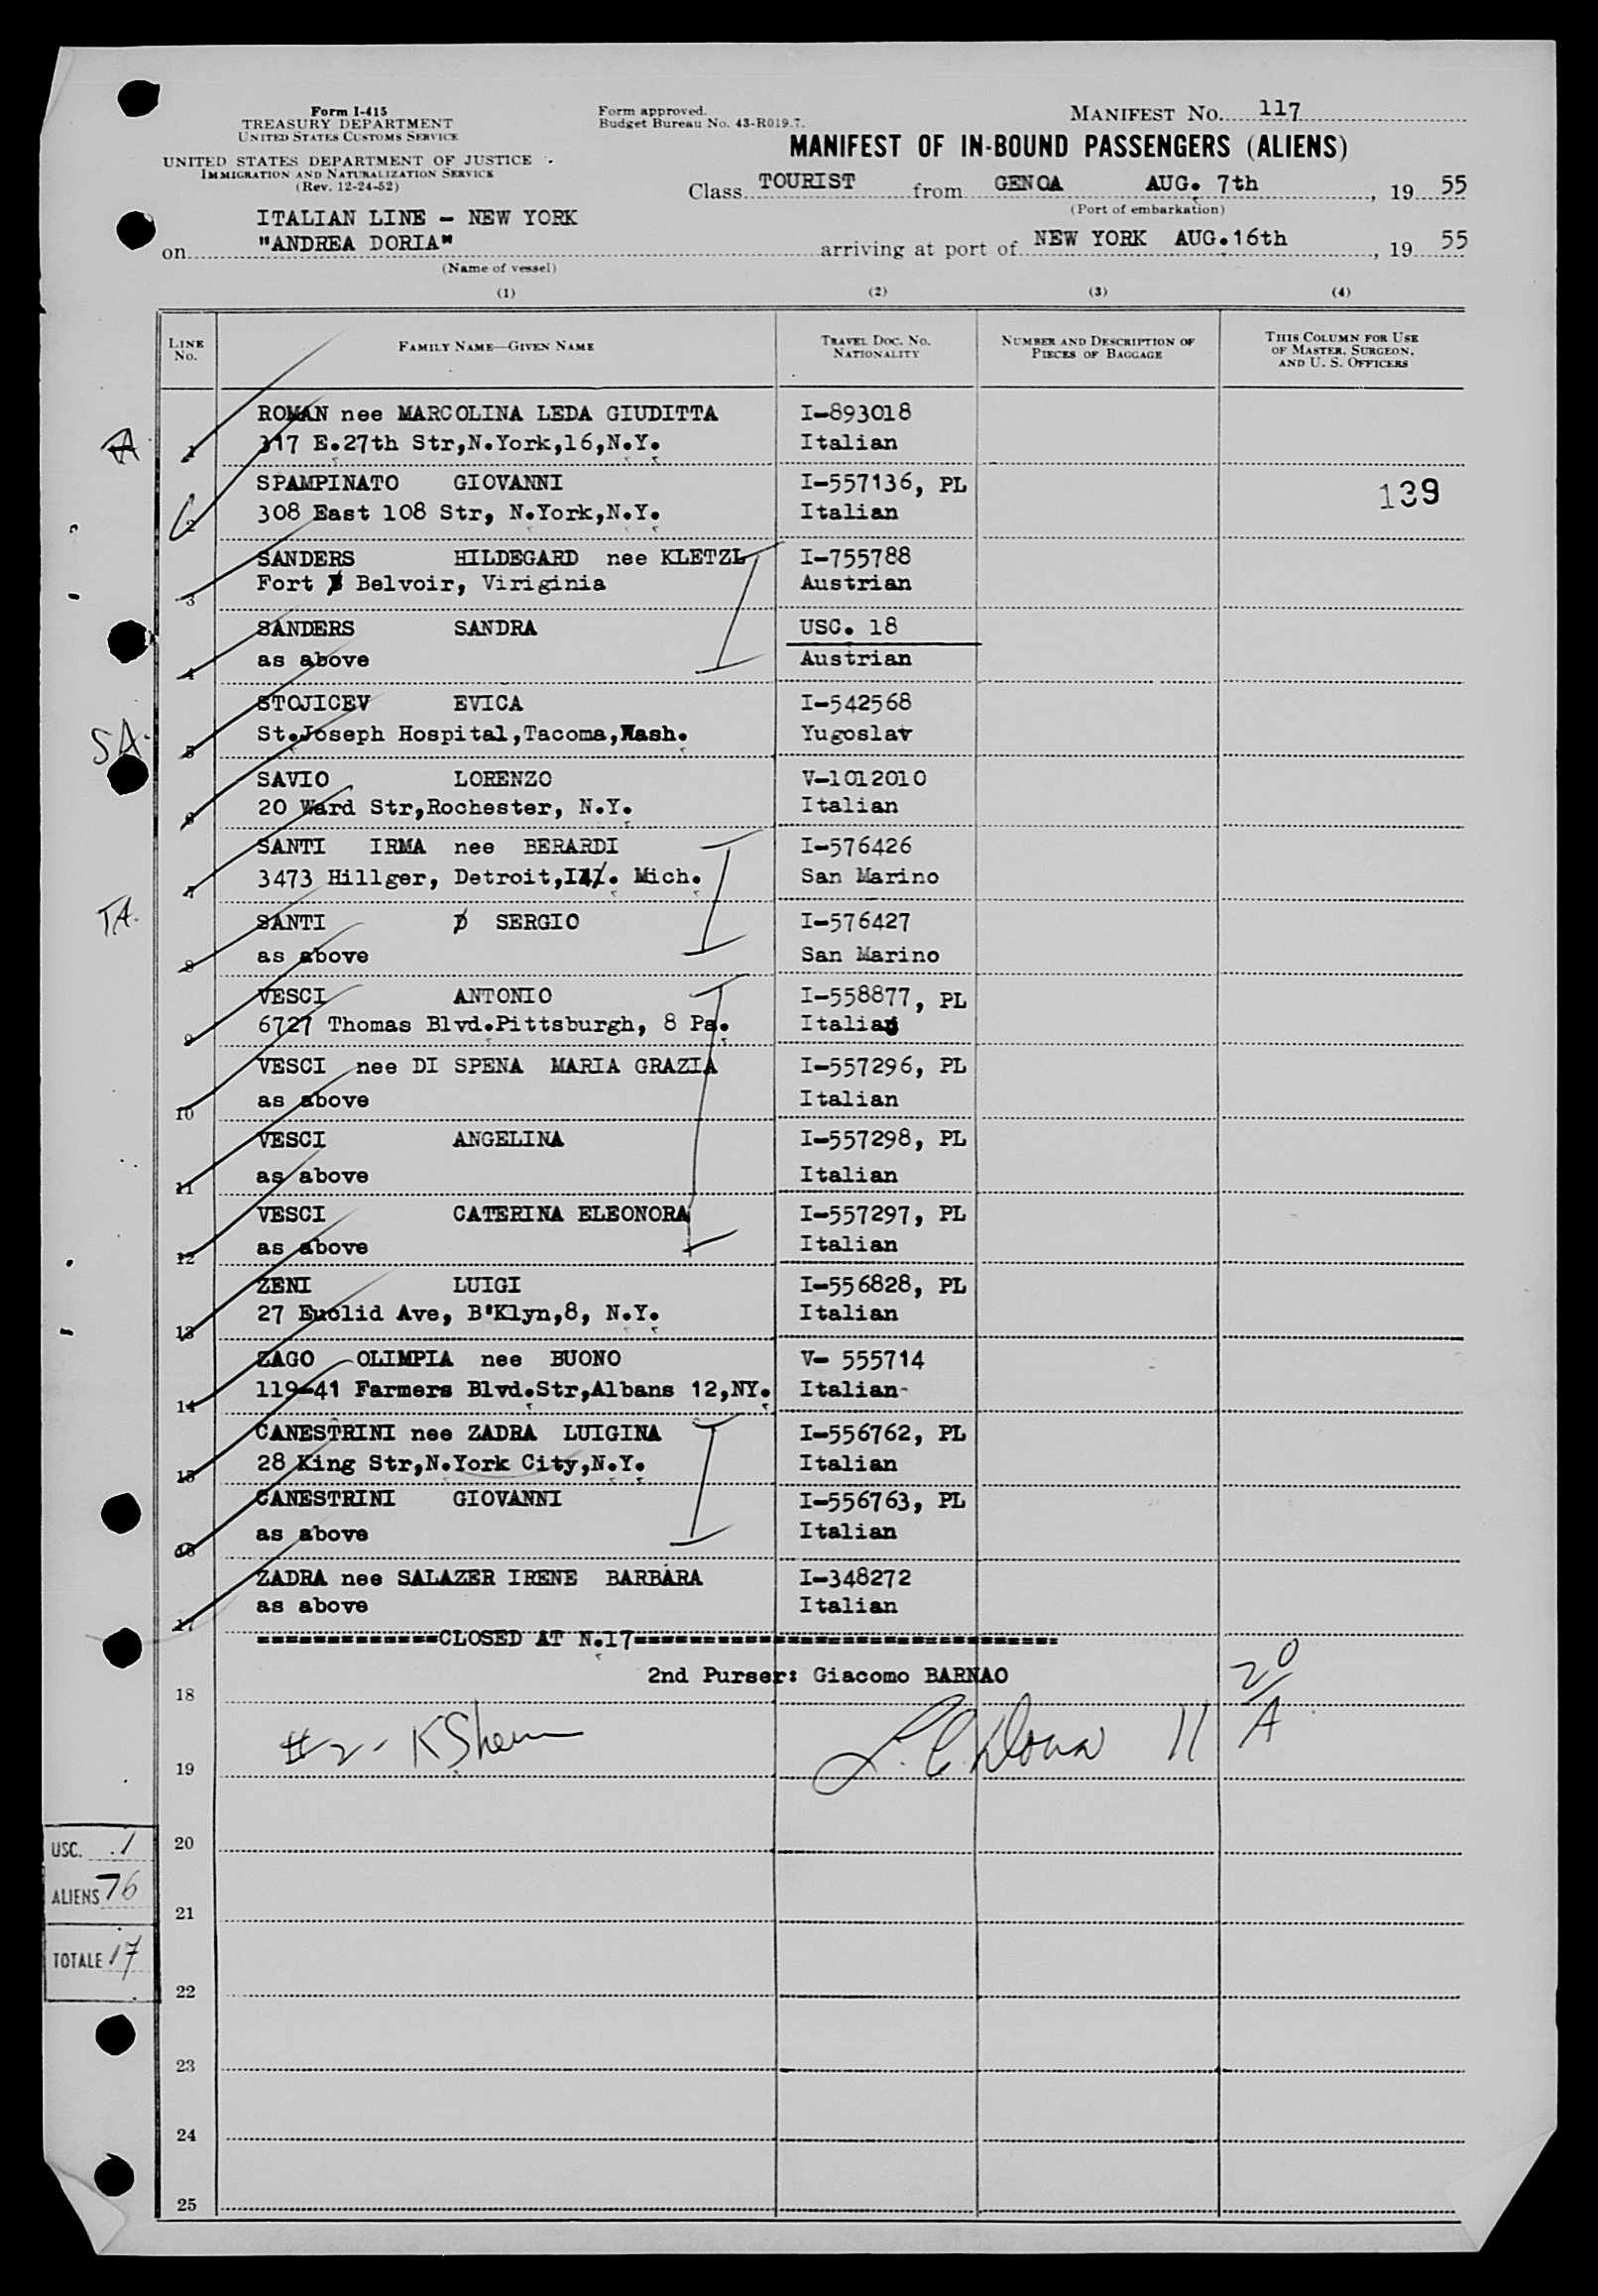 Form I-415
TREASURY DEPARTMENT
UNITED STATES CUSTOMS SERVICE
UNITED STATES DEPARTMENT OF JUSTICE
IMMIGRATION AND NATURALIZATION SERVICE
(Rev. 12-24-52)
Form approved.
Budget Bureau No. 43-R019.7.
MANIFEST No. 117
MANIFEST OF IN-BOUND PASSENGERS (ALIENS)
Class TOURIST from GENOA AUG. 7th, 19 55
(Port of embarkation)
ITALIAN LINE - NEW YORK
on "ANDREA DORIA" arriving at port of NEW YORK AUG.16th, 19 55
(Name of vessel)
(1) (2) (3) (4)
LINE No. FAMILY NAME—GIVEN NAME TRAVEL DOC. NO. NATIONALITY NUMBER AND DESCRIPTION OF PIECES OF BAGGAGE THIS COLUMN FOR USE OF MASTER, SURGEON, AND U. S. OFFICERS
ROMAN nee MARCOLINA LEDA GIUDITTA I-893018
A 1 317 E.27th Str,N.York,16,N.Y. Italian
SPAMPINATO GIOVANNI I-557136, PL 139
2 308 East 108 Str, N.York,N.Y. Italian
SANDERS HILDEGARD nee KLETZL I-755788
3 Fort Belvoir, Viriginia Austrian
SANDERS SANDRA USC. 18
4 as above Austrian
STOJICEV EVICA I-542568
SA. 5 St.Joseph Hospital,Tacoma,Wash. Yugoslav
SAVIO LORENZO V-1012010
6 20 Ward Str,Rochester, N.Y. Italian
SANTI IRMA nee BERARDI I-576426
7 3473 Hillger, Detroit,Ill. Mich. San Marino
TA. SANTI SERGIO I-576427
8 as above San Marino
VESCI ANTONIO I-558877, PL
9 6727 Thomas Blvd.Pittsburgh, 8 Pa. Italian
VESCI nee DI SPENA MARIA GRAZIA I-557296, PL
10 as above Italian
VESCI ANGELINA I-557298, PL
11 as above Italian
VESCI CATERINA ELEONORA I-557297, PL
12 as above Italian
ZENI LUIGI I-556828, PL
13 27 Euclid Ave, B'Klyn,8, N.Y. Italian
ZAGO OLIMPIA nee BUONO V- 555714
14 119-41 Farmers Blvd.Str,Albans 12,NY. Italian
CANESTRINI nee ZADRA LUIGINA I-556762, PL
15 28 King Str,N.York City,N.Y. Italian
CANESTRINI GIOVANNI I-556763, PL
16 as above Italian
ZADRA nee SALAZER IRENE BARBARA I-348272
17 as above Italian
=============CLOSED AT N.17==============================
2nd Purser: Giacomo BARNAO 20/A
18
#2- KShem 11
19
USC. 1 20
ALIENS 76
21
TOTALE 17
22
23
24
25